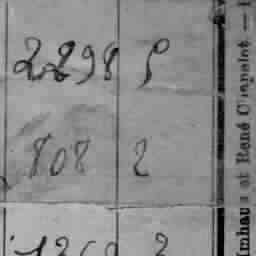 2298 9
808 2
1260 2
Imhaus et René Chapelot —